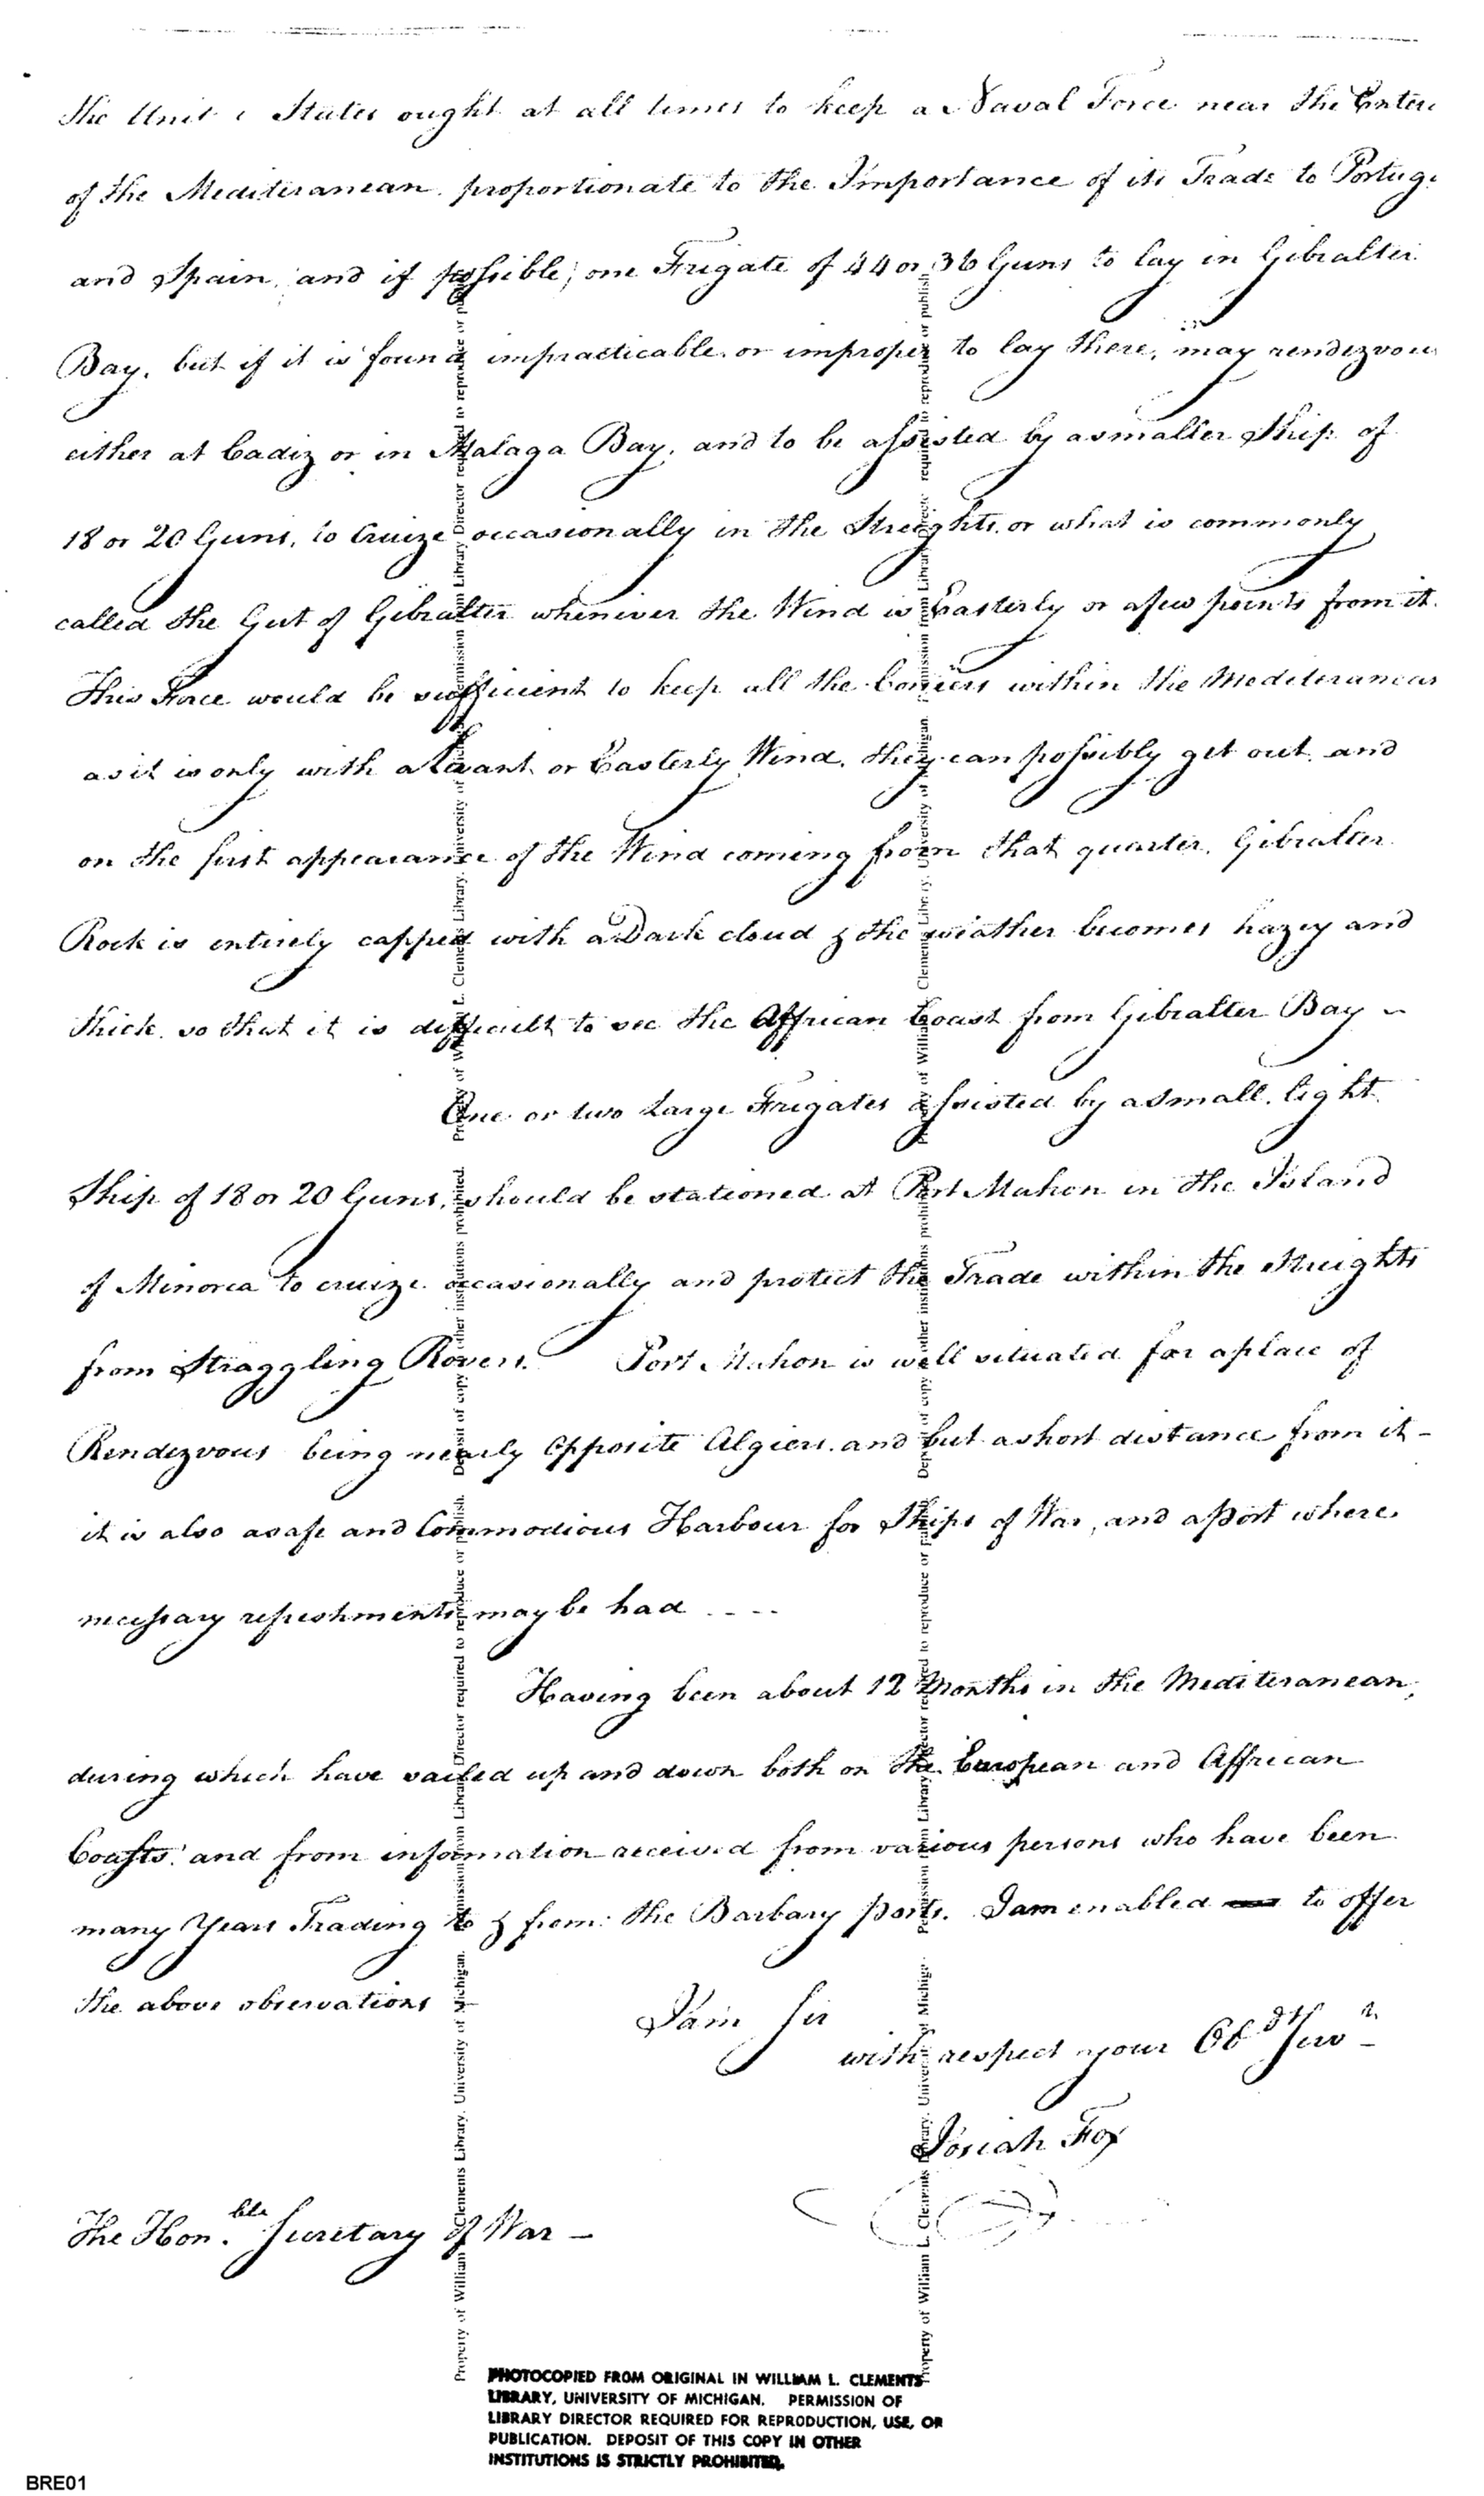 the Unit States ought at all times to keep a Naval Force near the Enter
of the Mediteranean proportionate to the Importance of its Trade to Portug
and Spain, and if possible, one Frigate of 44 or 36 Guns to lay in Gibralter
Bay, but if it is found impracticable or improper to lay there, may rendezvou
either at Cadiz or in Malaga Bay, and to be assisted by a smaller Ship of
18 or 20 Guns, to Cruize occasionally in the Streights or what is commonly
called the Gut of Gibralter whenever the Wind is Easterly or a few points from it.
This Force would be sufficient to keep all the Corsiers within the Mediteranean
as it is only with a Levant or Easterly Wind, they can possibly get out, and
on the first appearance of the Wind coming from that quarter, Gibralter
Rock is entirely capped with a Dark cloud & the weather becomes hazey and
thick so that it is difficult to see the Affrican Coast from Gibralter Bay ~
One or two Large Frigates assisted by a Small light
Ship of 18 or 20 Guns, should be stationed at Port Mahon in the Island
of Minorca to cruize occasionally and protect the Trade within the Streights
from Straggling Rovers. Port Mahon is well situated for a place of
Rendezvous being nearly Opposite Algiers and but a short distance from it -
it is also a safe and Commodious Harbour for Ships of War, and a Port where
necessary refreshments may be had ----
Having been about 12 Months in the Mediteranean,
during which have sailed up and down both on the European and Affrican
Coasts and from information received from various persons who have been
many Years Trading to & from the Barbary ports. I am enabled to offer
the above observations
I am Sir
with respect your Obdt Servt
Josiah Fox
The Honble Secretary of War -
Property of William L. Clements Library, University of Michigan. Permission from Library Director required to reproduce or publish. Deposit of copy other institutions prohibited.
Property of William L. Clements Library, University of Michigan. Permission from Library Director required to reproduce or publish.
Property of William L. Clements Library, University of Michigan. Permission from Library Director required to reproduce or publish. Deposit of copy other institutions prohibited.
Property of William L. Clements Library, University of Michigan. Permission from Library Director required to reproduce or publish
PHOTOCOPIED FROM ORIGINAL IN WILLIAM L. CLEMENTS
LIBRARY, UNIVERSITY OF MICHIGAN. PERMISSION OF
LIBRARY DIRECTOR REQUIRED FOR REPRODUCTION, USE, OR
PUBLICATION. DEPOSIT OF THIS COPY IN OTHER
INSTITUTIONS IS STRICTLY PROHIBITED.
BRE01